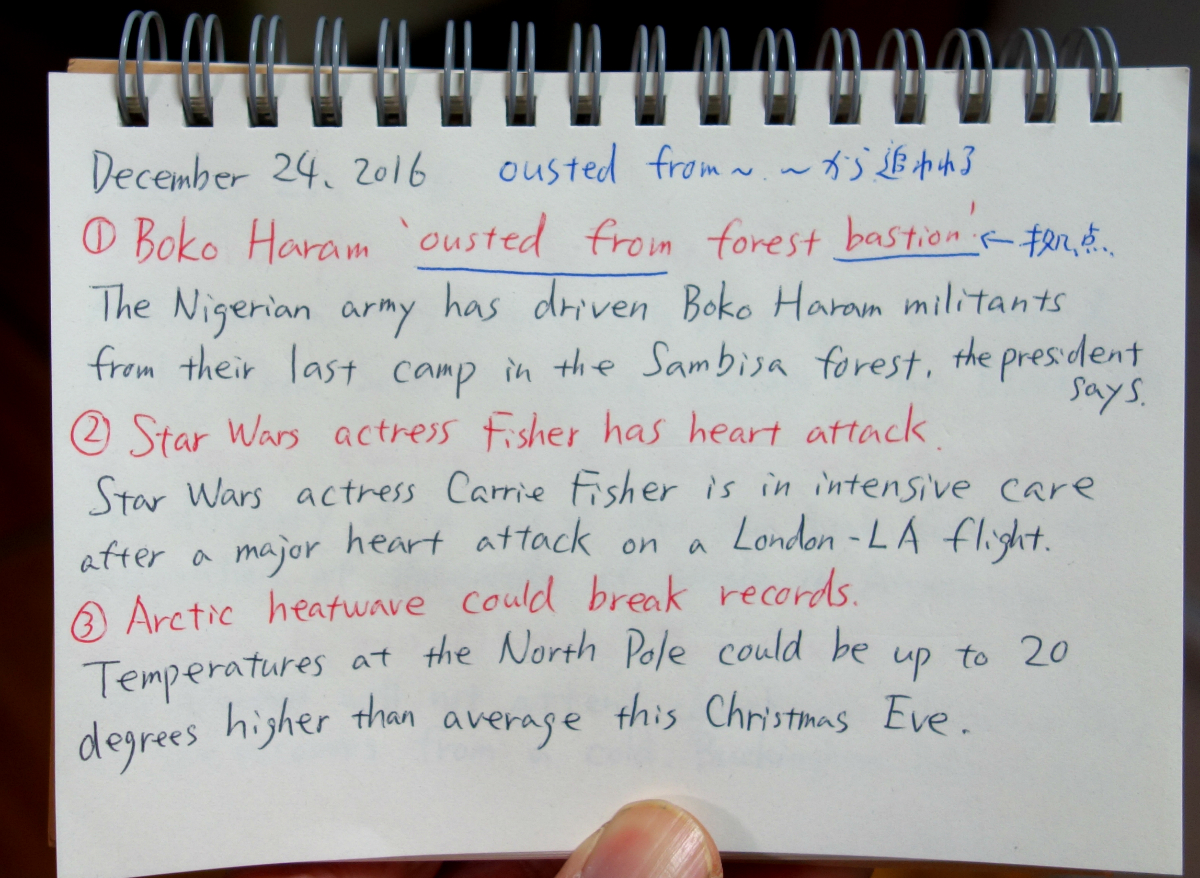 December 24, 2016 ousted from～ ～から追われる
① Boko Haram 'ousted from forest bastion' ← 拠点
The Nigerian army has driven Boko Haram militants
from their last camp in the Sambisa forest, the president
says.
② Star Wars actress Fisher has heart attack.
Star Wars actress Carrie Fisher is in intensive care
after a major heart attack on a London-LA flight.
③ Arctic heatwave could break records.
Temperatures at the North Pole could be up to 20
degrees higher than average this Christmas Eve.